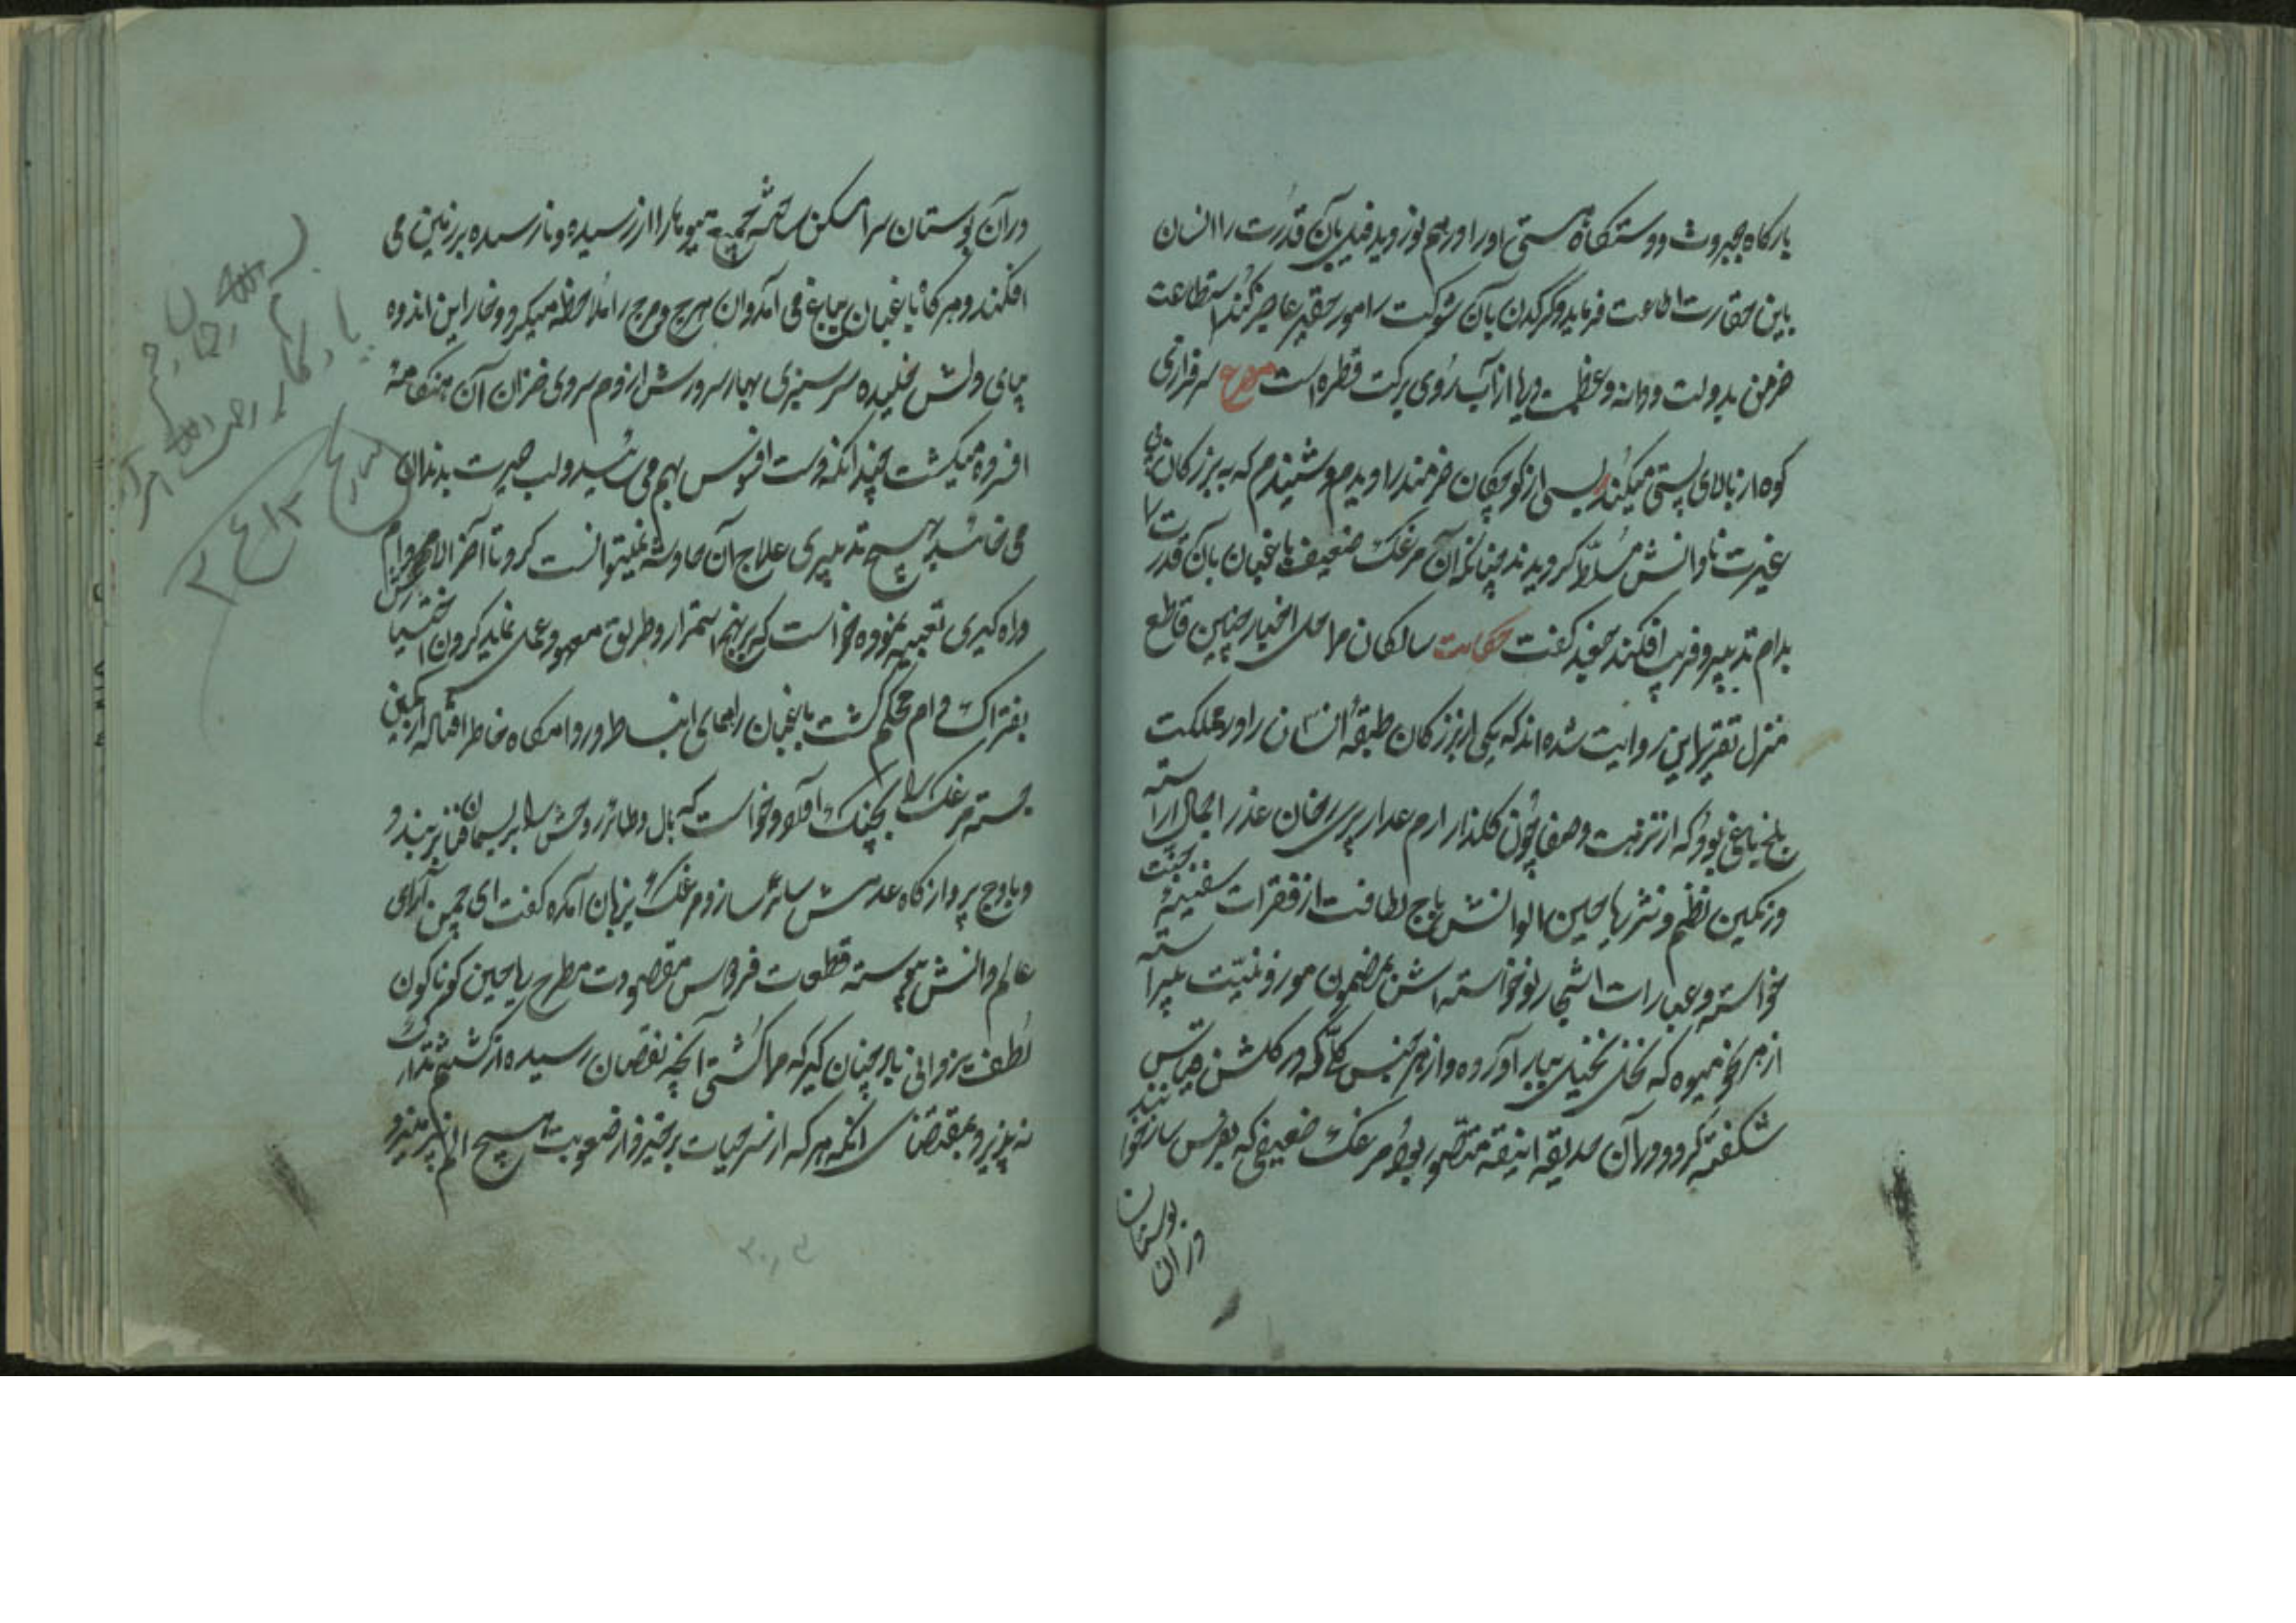 بارگاه جبروت و دستگاه هستی او را درهم نوردید فیل بآن قدرت را انسان
باین حقارت اطاعت فرماید و کرگدن بآن شوکت را مور حقیر عاجز کند استطاعت
خرمن بدولت دانه و عظمت دریا از آب روی برکت قطره است مصرع سرفرازی
کوه از بالای پستی میکند بسی از کوچکان خردمند را دیدم و شنیدم که به بزرگان
غیرت نادانش مسلط گردیدند چنانکه آن مرغک ضعیف باغبان بآن قدرت را
بدام تدبیر و فریب افکند جغد گفت حکایت سالکان مراحل اخبار چنین قاطع
منزل تقریر این روایت شده اند که یکی از بزرگان طبقه انسان را در مملکت
بلخ باغی بود که از نزهت و صفا چون گلزار ارم عذار پری رخان عذرا جمال آراسته
و رنگین نظم و نثر ریاحین الوانش باج لطافت از فقرات سفینه جنت
خواسته و عبارات اشجار نو خواسته اش بمضمون موزونیت پیراسته
از هر نحو میوه که نخل تخیل ببار آورده و از هر جنس گل که در گلشن قیاس
شگفته گردد در آن حدیقه انیقه متصور بود مرغک ضعیفی که بقفس ساز
در آن بوستان
در آن بوستان سرا مسکن ساخته جمیع میوها را از رسیده و نارسیده بر زمین می
افکند و هرگاه باغبان بباغ می آمد و آن هرج و مرج را ملاحظه میکرد و خار این اندوه
بپای دلش خلیده سرسبزی بهار سرورش از دم سردی خزان آن هنگامه
افسرده میگشت چندانکه دست افسوس بهم می سائید و لب حیرت بدندان
می خائید هیچ تدبیری علاج آن حادثه نمیتوانست کرد تا آخر الامر دام
در راه گیری تعبیه نموده خواست که بر نهج استمرار و طریق معهود عمل نماید گردن
بفتراک دام محکم گشت باغبان را همای انبساط در دامگاه خاطر افتاده از کمین
جسته مرغک را بچنگ آورد و خواست که بال و طائر روحش را بریسمان فنا بربندد
و باوج پروازگاه عدمش سائر سازد مرغک بزبان آمده گفت ای چمن آرای
عالم دانش پیوسته قطعات فردوس مقصودت مطرح ریاحین گوناگون
لطف یزدانی باد چنان گیر که مرا کشتی آنچه نقصان رسیده از کشتنم تدارک
نه پذیرد و بمقتضای آنکه هر که از سر حیات برخیزد از صعوبت هیچ الم نپرهیزد
بسم الله
یادگار